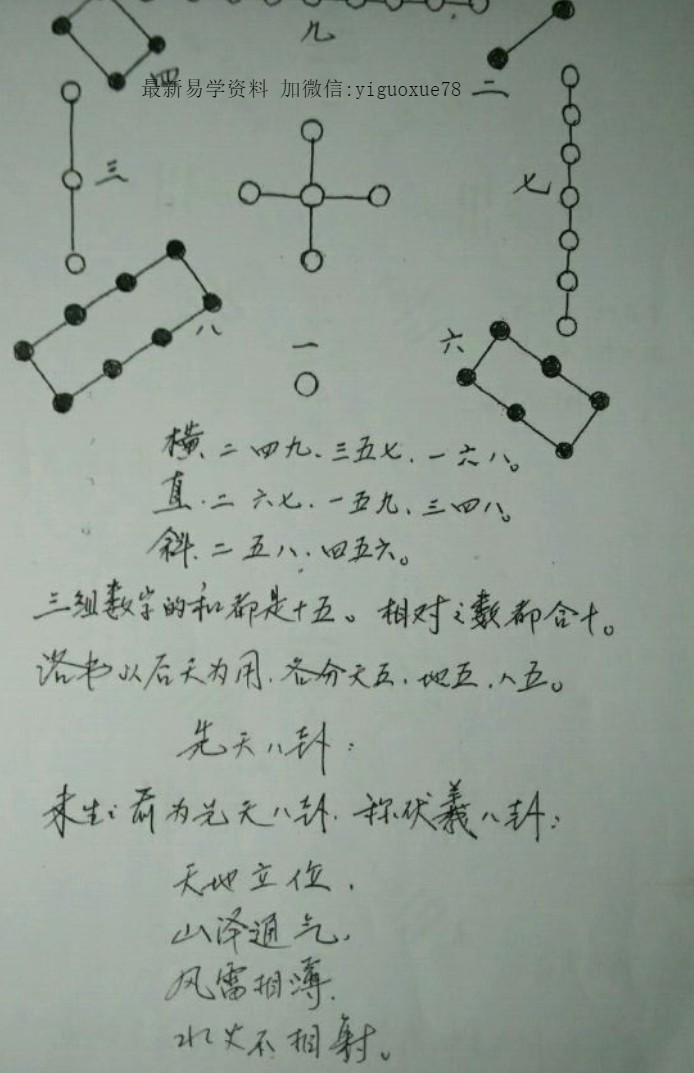 九
四
最新易学资料 加微信:yiguoxue78
二
三
七
八
一
六
横、二四九、三五七、一六八。
直、二六七、一五九、三四八。
斜、二五八、四五六。
三组数字的和都是十五。相对之数都合十。
洛书以后天为用、各分天五、地五、人五。
先天八卦:
未生之前为先天八卦、称伏羲八卦:
天地立位、
山泽通气、
风雷相薄、
水火不相射。